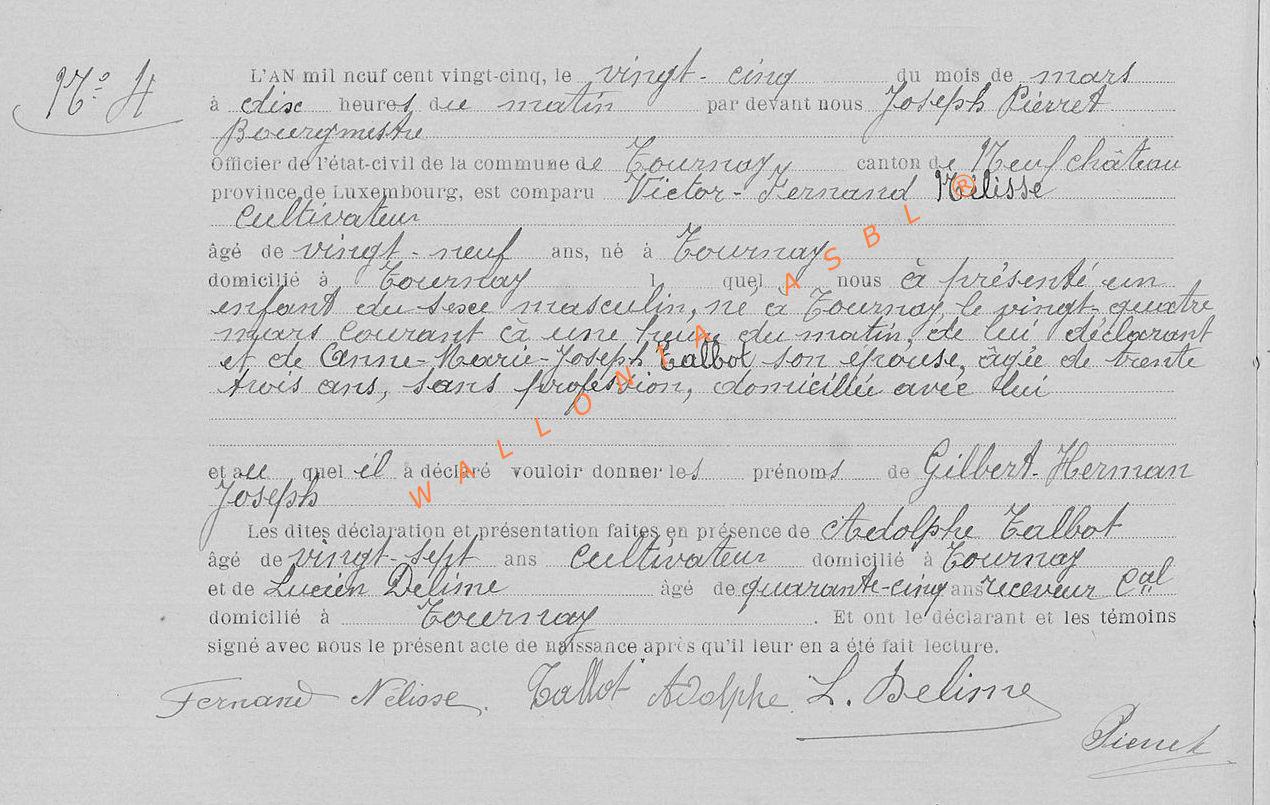 N° 4
L'AN mil neuf cent vingt-cinq, le vingt-cinq du mois de mars
à dix heures du matin par devant nous Joseph Pierret
Bourgmestre
Officier de l'état-civil de la commune de Tournay canton de Neufchâteau
province de Luxembourg, est comparu Victor-Fernand Nélisse
cultivateur
âgé de vingt-neuf ans, né à Tournay
domicilié à Tournay l quel nous à présenté un
enfant du sexe masculin, né à Tournay, le vingt-quatre
mars courant à une heure du matin, de lui déclarant
et de Anne-Marie-Joseph Talbot son épouse, âgée de trente
trois ans, sans profession, domiciliée avec lui
et au quel il à déclaré vouloir donner les prénoms de Gilbert-Herman
Joseph
Les dites déclaration et présentation faites en présence de Adolphe Talbot
âgé de vingt-sept ans cultivateur domicilié à Tournay
et de Lucien Delime âgé de quarante-cinq ans receveur Cal
domicilié à Tournay. Et ont le déclarant et les témoins
signé avec nous le présent acte de naissance après qu'il leur en a été fait lecture.
Fernand Nélisse. Talbot Adolphe. L. Delime
Pierret
WALLONIA ASBL ®